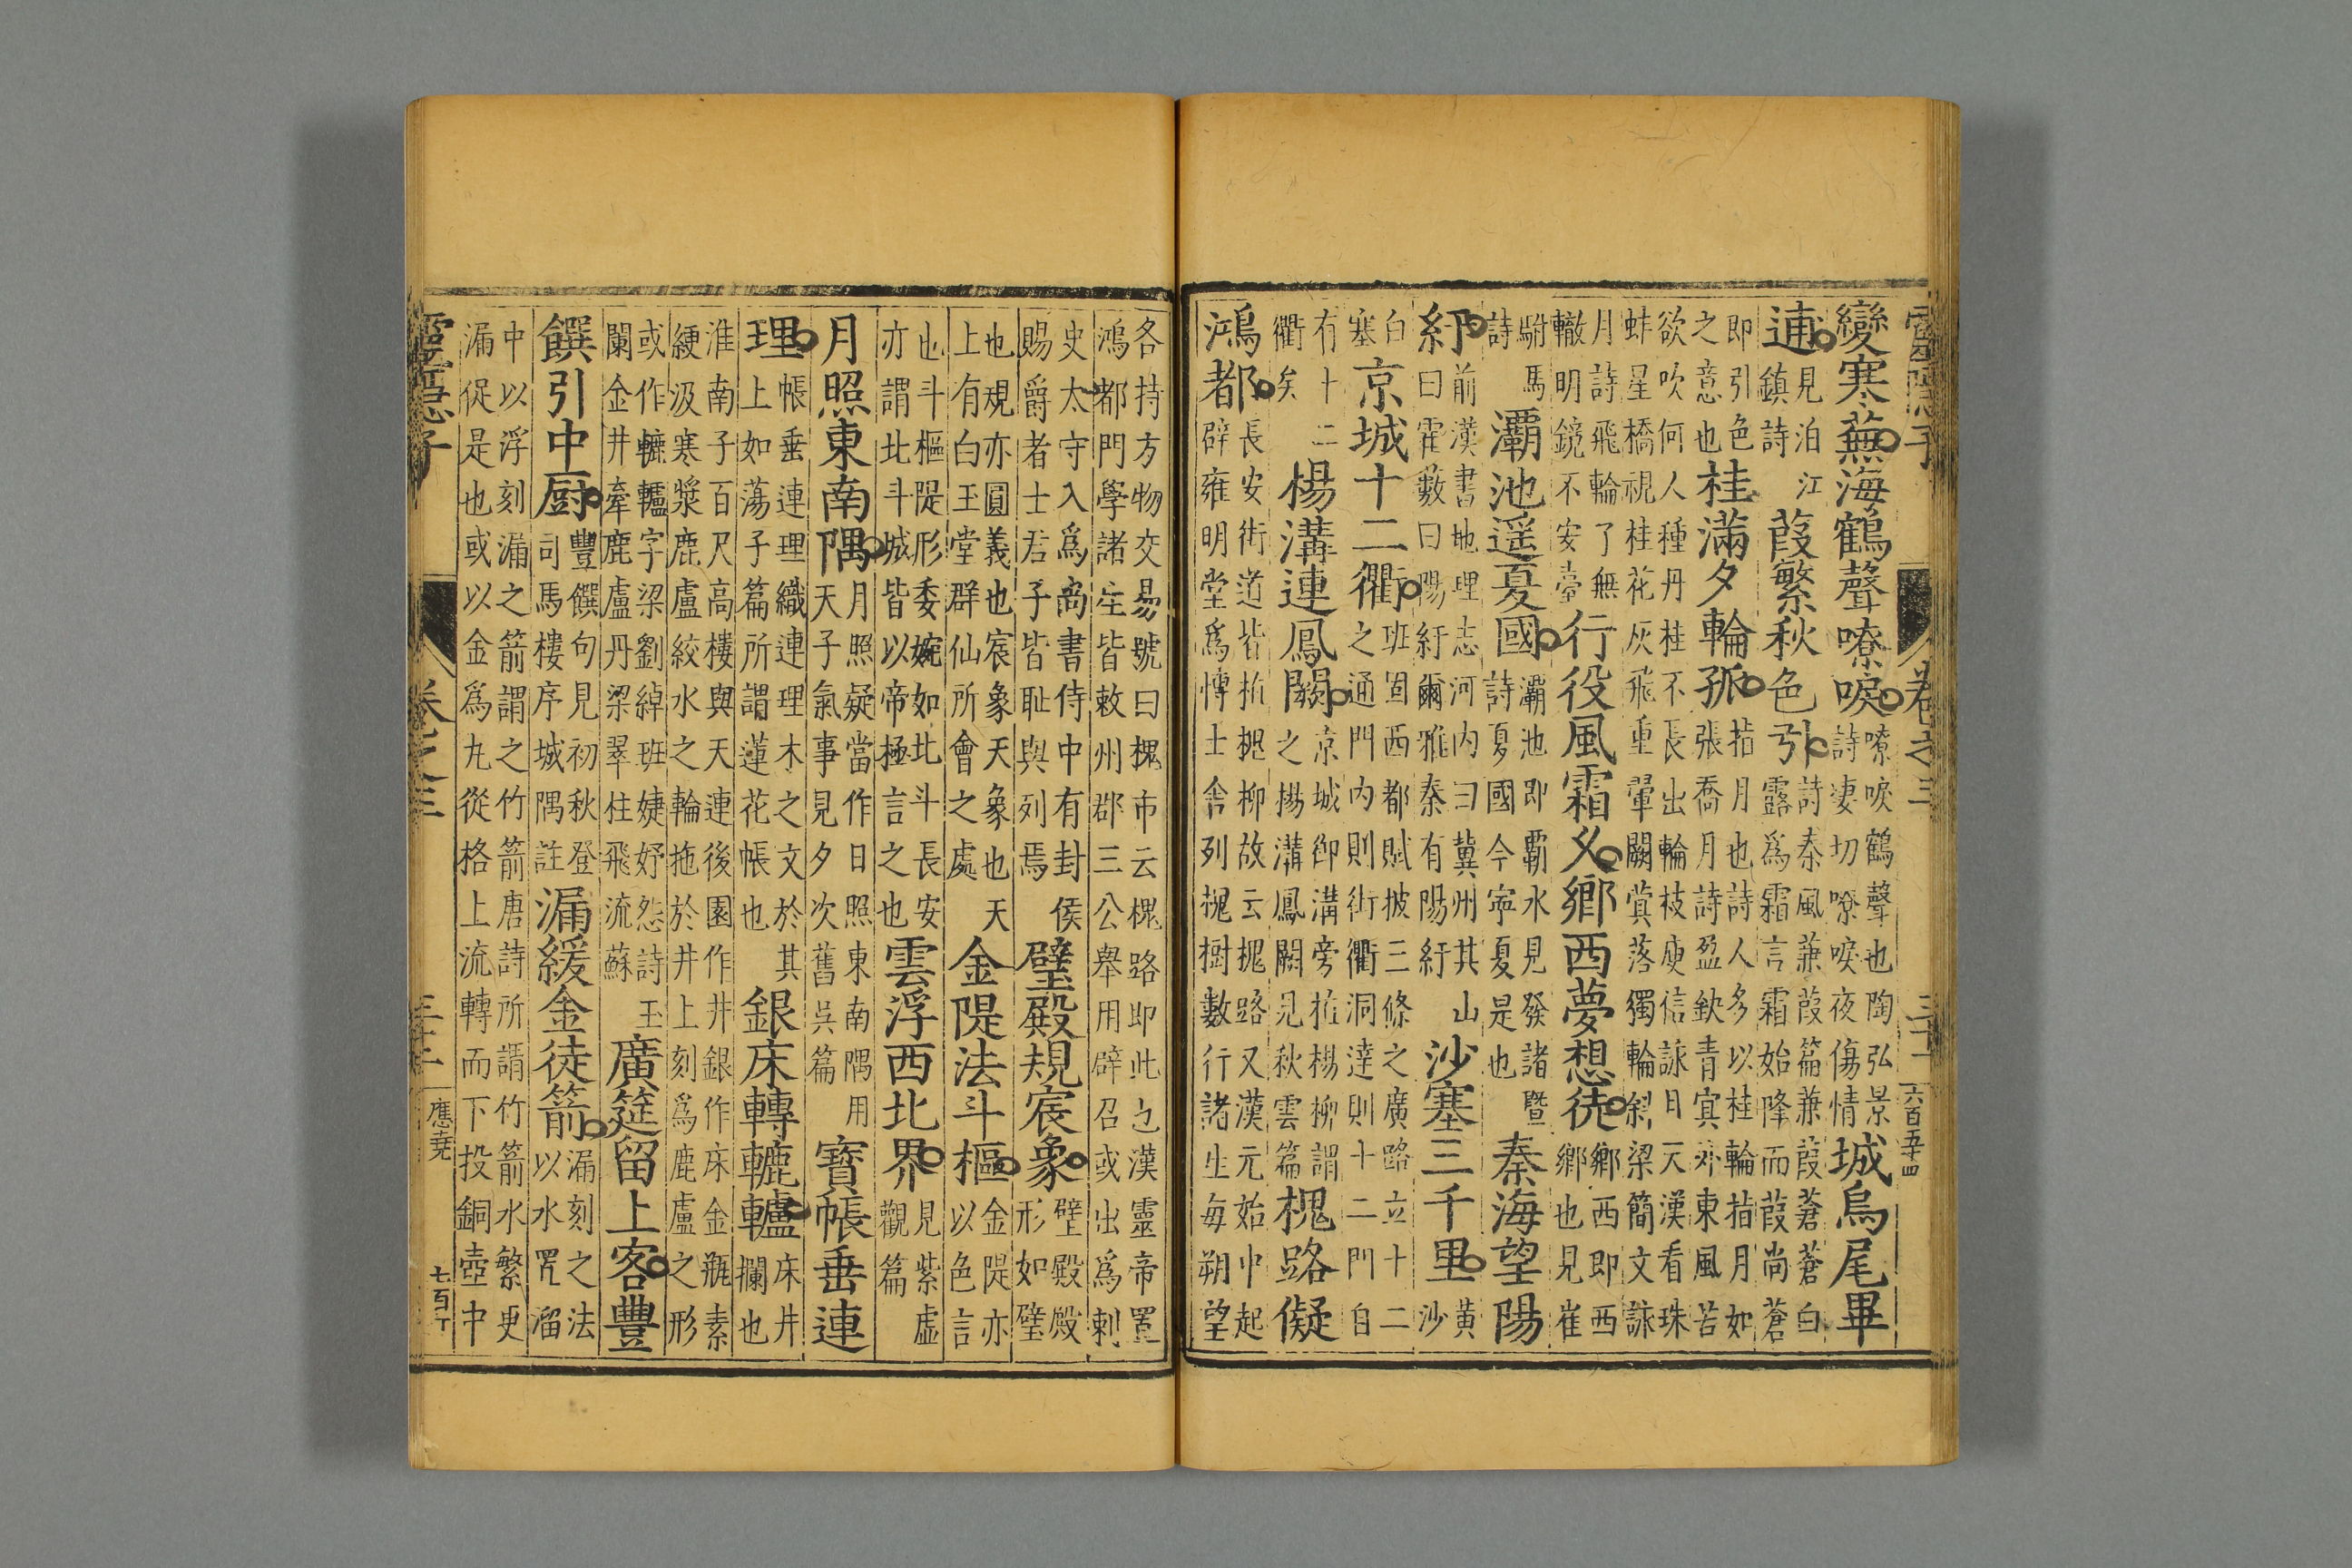 靈隱子 卷之三 三十一 六百五十四
變寒蕪海鶴聲嘹唳嘹唳鶴聲也陶弘景詩淒切嘹唳夜傷情城烏尾畢
逋見泊江鎮詩葭繁秋色引詩秦風蒹葭篇蒹葭蒼蒼白露為霜言霜始降而葭尚蒼
即引色之意也桂滿夕輪孤指月也詩人多以桂輪指月如張喬月詩盈缺青冥外東風苦
欲吹何人種丹桂不長出輪枝庾信詠日天漢看珠蚌星橋視桂花灰飛重暈闕蓂落獨輪斜梁簡文詠
月詩飛輪了無轍明鏡不安臺行役風霜久鄉西夢想徒鄉西即西鄉也見崔
駙馬詩灞池遥夏國灞池即霸水見發諸暨詩夏國今寧夏是也秦海望陽
紆前漢書地理志河内曰冀州其山曰霍藪曰陽紆爾雅秦有陽紆沙塞三千里黃沙
白塞京城十二衢班固西都賦披三條之廣路立十二之通門内則街衢洞達則十二門自
有十二衢矣楊溝連鳳闕京城御溝旁植楊柳謂之楊溝鳳闕見秋雲篇槐路儗
鴻都長安街道皆植槐柳故云槐路又漢元始中起辟雍明堂為博士舍列槐樹數行諸生每朔望
各持方物交易號曰槐市云槐路即此也漢靈帝置鴻都門學諸生皆敕州郡三公舉用辟召或出為刺
史太守入為尚書侍中有封侯賜爵者士君子皆恥與列焉璧殿規宸象璧殿殿形如璧
也規亦圓義也宸象天象也天上有白玉堂群仙所會之處金隄法斗樞金隄亦以色言
也斗樞隄形委婉如北斗長安亦謂北斗城皆以帝極言之也雲浮西北界見紫虛觀篇
月照東南隅月照疑當作日照東南隅用天子氣事見夕次舊吳篇寶帳垂連
理帳垂連理織連理木之文於其上如蕩子篇所謂蓮花帳也銀床轉轆轤床井攔也
淮南子百尺高樓與天連後園作井銀作床金瓶素綆汲寒漿鹿盧絞水之輪拖於井上刻為鹿盧之形
或作轆轤字梁劉綽班婕妤怨詩玉闌金井牽鹿盧丹梁翠柱飛流蘇廣筵留上客豐
饌引中厨豐饌句見初秋登司馬樓序城隅註漏緩金徒箭漏刻之法以水罟溜
中以浮刻漏之箭謂之竹箭唐詩所謂竹箭水繁更漏促是也或以金為九從格上流轉而下投銅壺中
靈隱子 卷之三 應堯